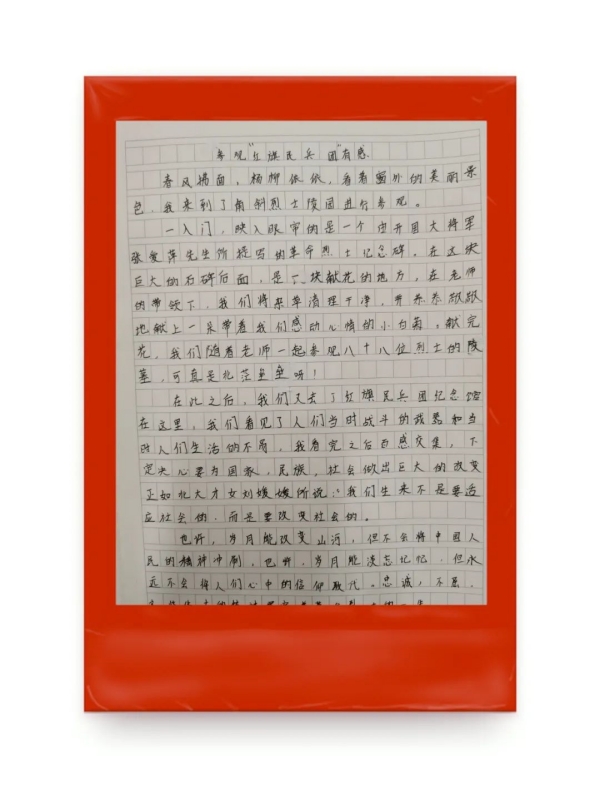 参观“红旗民兵团”有感
春风拂面，杨柳依依，看着窗外的美丽景
色，我来到了角斜烈士陵园进行参观。
一入门，映入眼帘的是一个由开国大将军
张爱萍先生所提写的革命烈士记念碑，在这块
巨大的石碑后面，是一块献花的地方，在老师
的带领下，我们将杂草清理干净，并恭恭敬敬
地献上一朵带着我们感动心情的小白菊，献完
花，我们随着老师一起参观八十八位烈士的陵
墓，可真是北茫垒垒呀！
在此之后，我们又去了红旗民兵团记念馆
在这里，我们看见了人们当时战斗的我慕和当
时人们生活的不易，我看完之后百感交集，下
定决心要为国家，民族，社会做出巨大的改变
正如北大才女刘媛媛所说：我们生来不是要适
应社会的，而是要改变社会的。
也许，岁月能改变山河，但不会将中国人
民的精神冲刷，也许，岁月能淡忘记忆，但永
远不会将人们心中的信仰取代。忠诚，不惹，